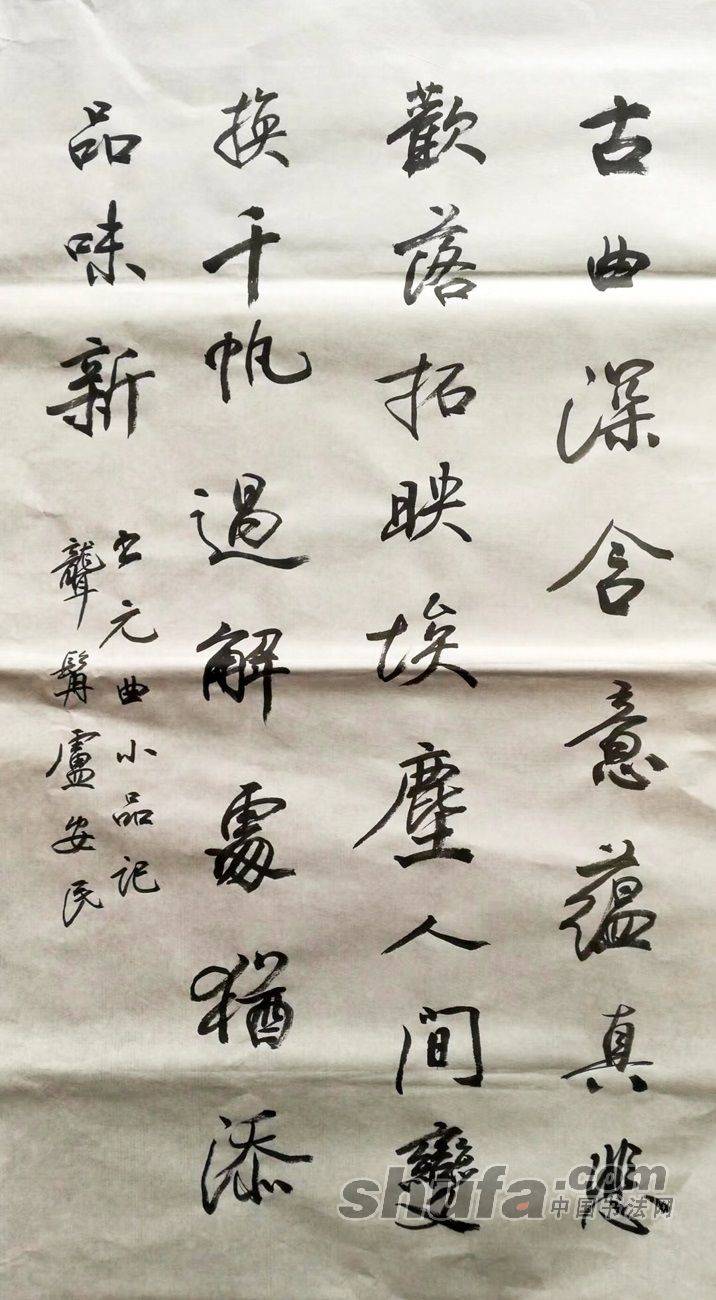 古曲深含意蕴真悲
歡落拓映埃塵人間變
換千帆過解處猶添
品味新
书元曲小品记
聾髯盧安民
shufa.com
中国书法网